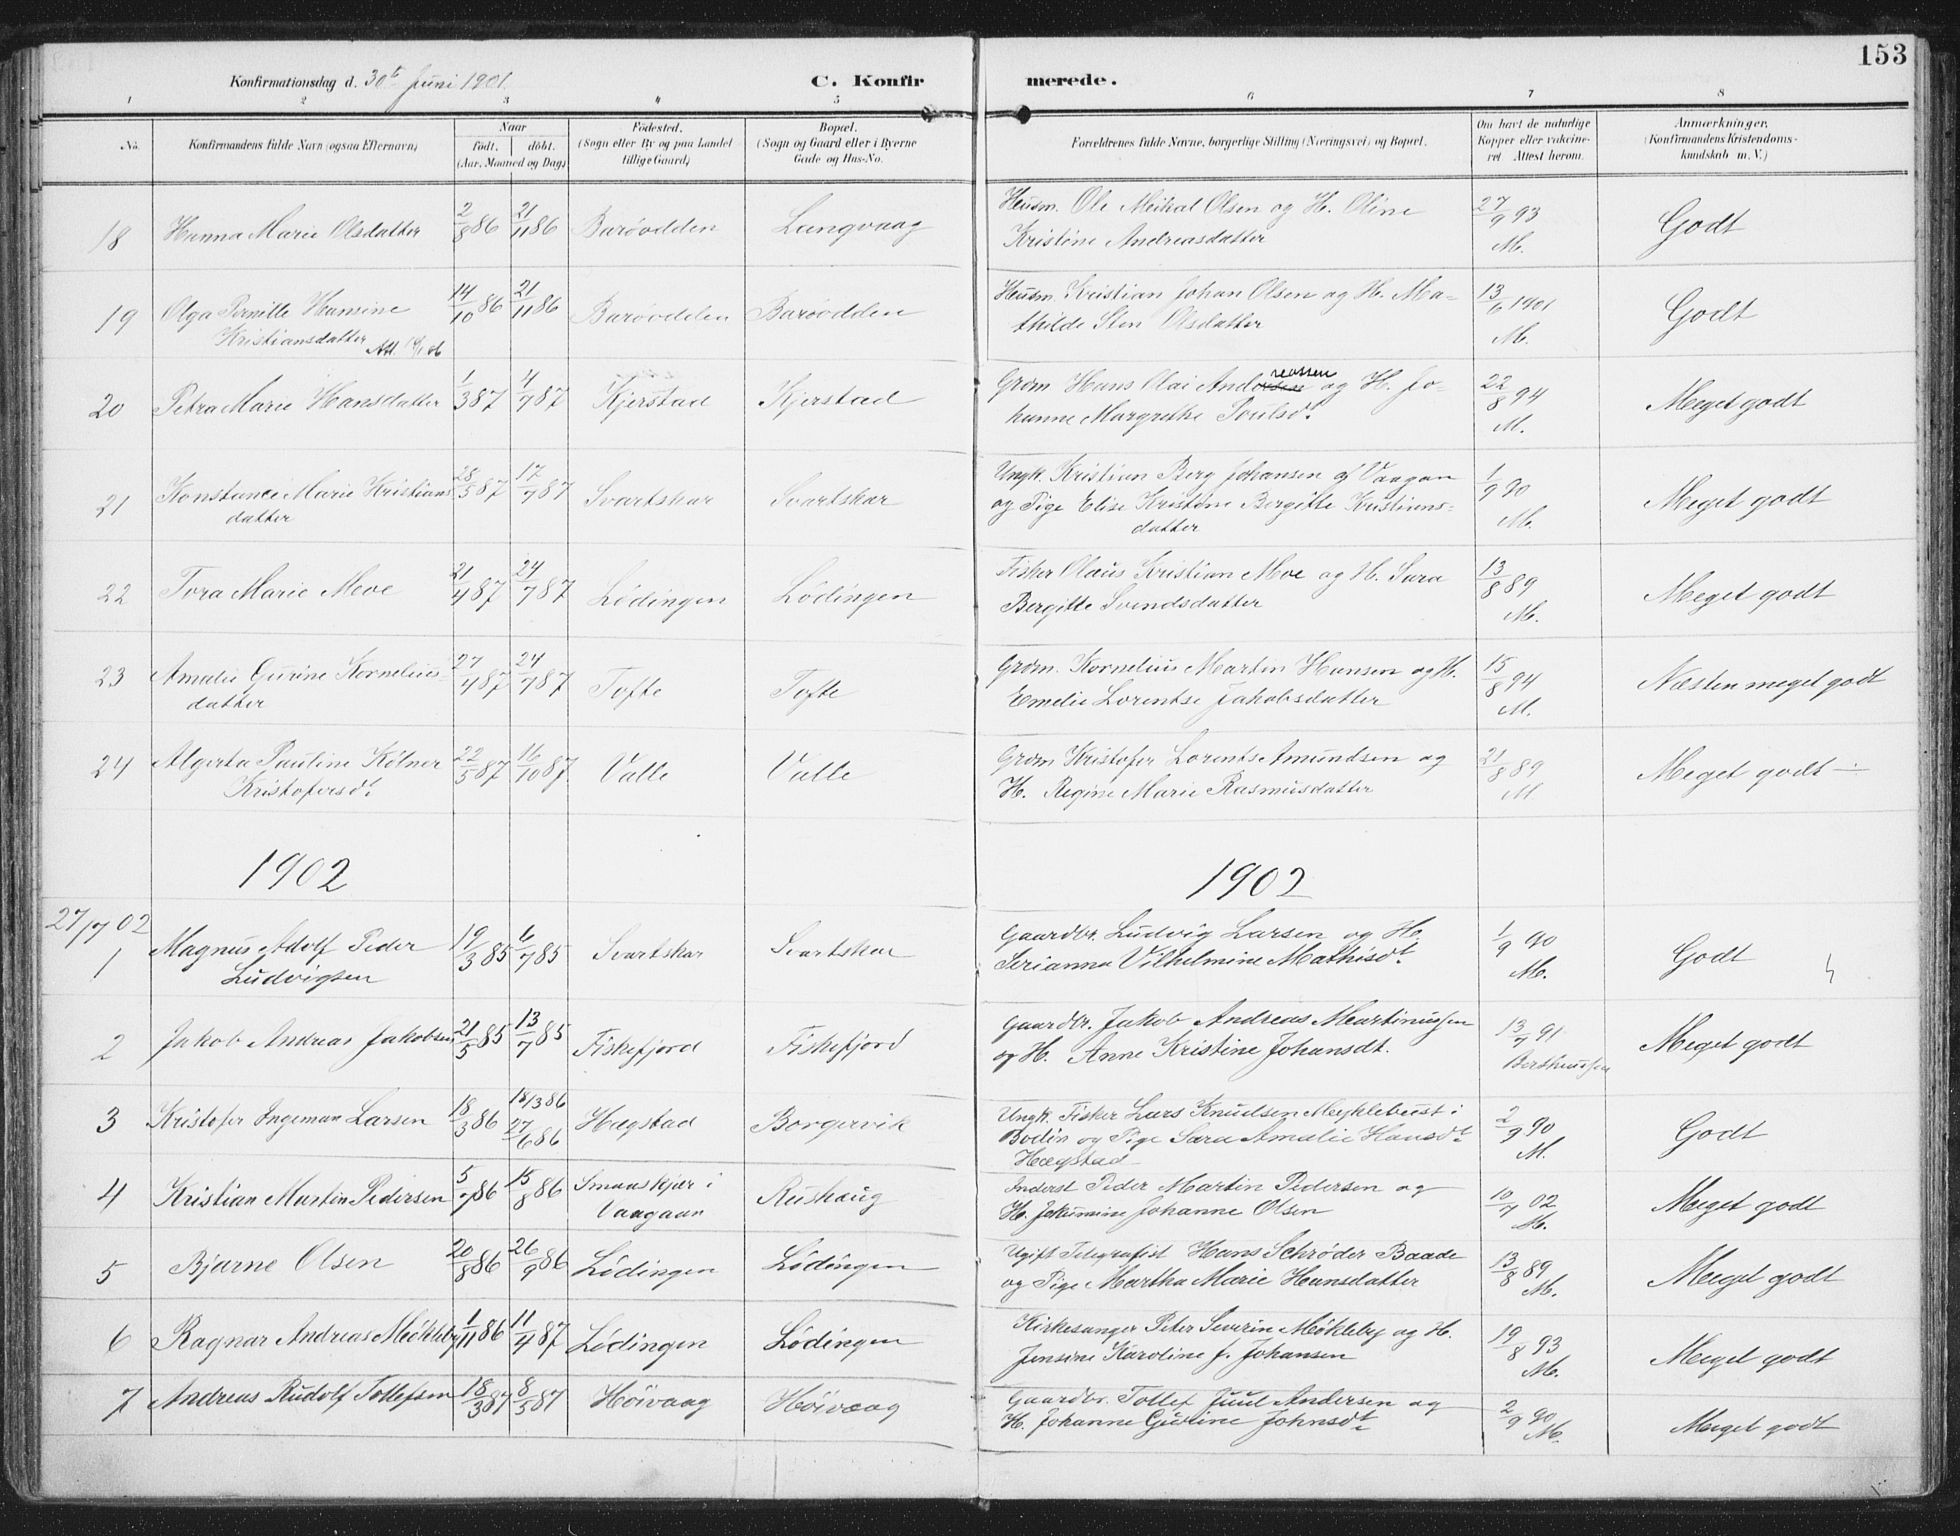 153
Konfirmationsdag d. 30te Juni 1901.
C. Konfir merede.
1 2 3 4 5 6 7 8
No.
Konfirmandens fulde Navn (ogsaa Efternavn)
Naar
født. døbt.
(Aar, Maaned og Dag)
Fødested.
(Sogn eller By og paa Landet
tillige Gaard)
Bopæl.
(Sogn og Gaard eller i Byerne
Gade og Hus-No.
Forældrenes fulde Navne, borgerlige Stilling (Næringsvei) og Bopæl.
Om havt de naturlige
Kopper eller vakcine-
ret Attest herom.
Anmærkninger,
(Konfirmandens Kristendoms-
kundskab m. V.)
18 Hanna Marie Olsdatter 2/8 86 21/11 86 Barøodden Langvaag Husm. Ole Meikal Olsen og H. Oline 27/9 93 Godt
Kristine Andreasdatter M.
19 Olga Pernille Hansine 14/10 86 21/11 86 Barøodden Barøodden Husm. Kristian Johan Olsen og H. Ma- 13/6 1901 Godt
Kristiansdatter thilde Olsdatter M.
20 Petra Marie Hansdatter 1/3 87 4/9 87 Kjerstad Kjerstad Grdm. Hans Olai Andreassen og H. Jo- 22/8 94 Meget godt
hanne Margrethe Poulsdt. M.
21 Konstance Marie Kristians 28/5 87 17/7 87 Svartskar Svartskar Ungk. Kristian Berg Johansen af Vaagan 1/9 90 Meget godt
datter og Pige Elise Kristine Bergitte Kristians- M.
datter
22 Tora Marie Moe 21/4 87 24/7 87 Lødingen Lødingen Fisker Olaus Kristian Moe og H. Sara 13/8 89 Meget godt
Bergitte Svendsdatter M.
23 Amalie Gurine Kornelius- 27/4 87 24/7 87 Tofte Tofte Grdm. Kornelius Martin Hansen og H. 15/8 94 Næsten meget godt
datter Emelie Lorentse Jakobsdatter M.
24 Algerta Pauline Kølner 22/5 87 16/10 87 Valle Valle Grdm Kristofer Lorents Amundsen og 21/8 89 Meget godt
Kristofersdt. H. Regine Marie Rasmusdatter M
1902 1902
27/7 02
1 Magnus Adolf Peder 19/3 85 6/7 85 Svartskar Svartskar Gaardbr. Ludvig Larsen og H. 1/9 90 Godt
Ludvigsen Serianna Vilhelmine Mathisdt. M.
2 Jakob Andreas Jakobsen 21/5 85 13/7 85 Fiskefjord Fiskefjord Gaardbr. Jakob Andreas Martinussen 13/7 91 Meget godt
og H. Anne Kristine Johansdt. Bertheussen
3 Kristofer Ingeman Larsen 18/3 86 18/3 86 27/6 86 Hægstad Borgervik Ungk. Fisker Lars Knudsen Myklebust i 2/9 90 Godt
Bodin og Pige Sara Amalie Hansdt. M.
Hægstad
4 Kristian Martin Pedersen 5/7 86 15/8 86 Smaaskjær i Rishaug Inderst Peder Martin Pedersen og 10/7 02 Meget godt
Vaagaan H. Jakumine Johanne Olsen M.
5 Bjarne Olsen 20/8 86 26/9 86 Lødingen Lødingen Ugift Telegrafist Hans Schrøder Baade 13/8 89 Meget godt
og Pige Martha Marie Hansdatter M.
6 Ragnar Andreas Møkleby 1/11 86 11/4 87 Lødingen Lødingen Kirkesanger Peter Severin Møkleby og H. 19/8 93 Meget godt
Jensine Karoline f. Johansen M.
7 Andreas Rudolf Tollefsen 18/3 87 8/5 87 Høivaag Høivaag Gaardbr. Tollef Juul Andersen og 2/9 90 Meget godt
H. Johanne Gurine Johnsdt. M.